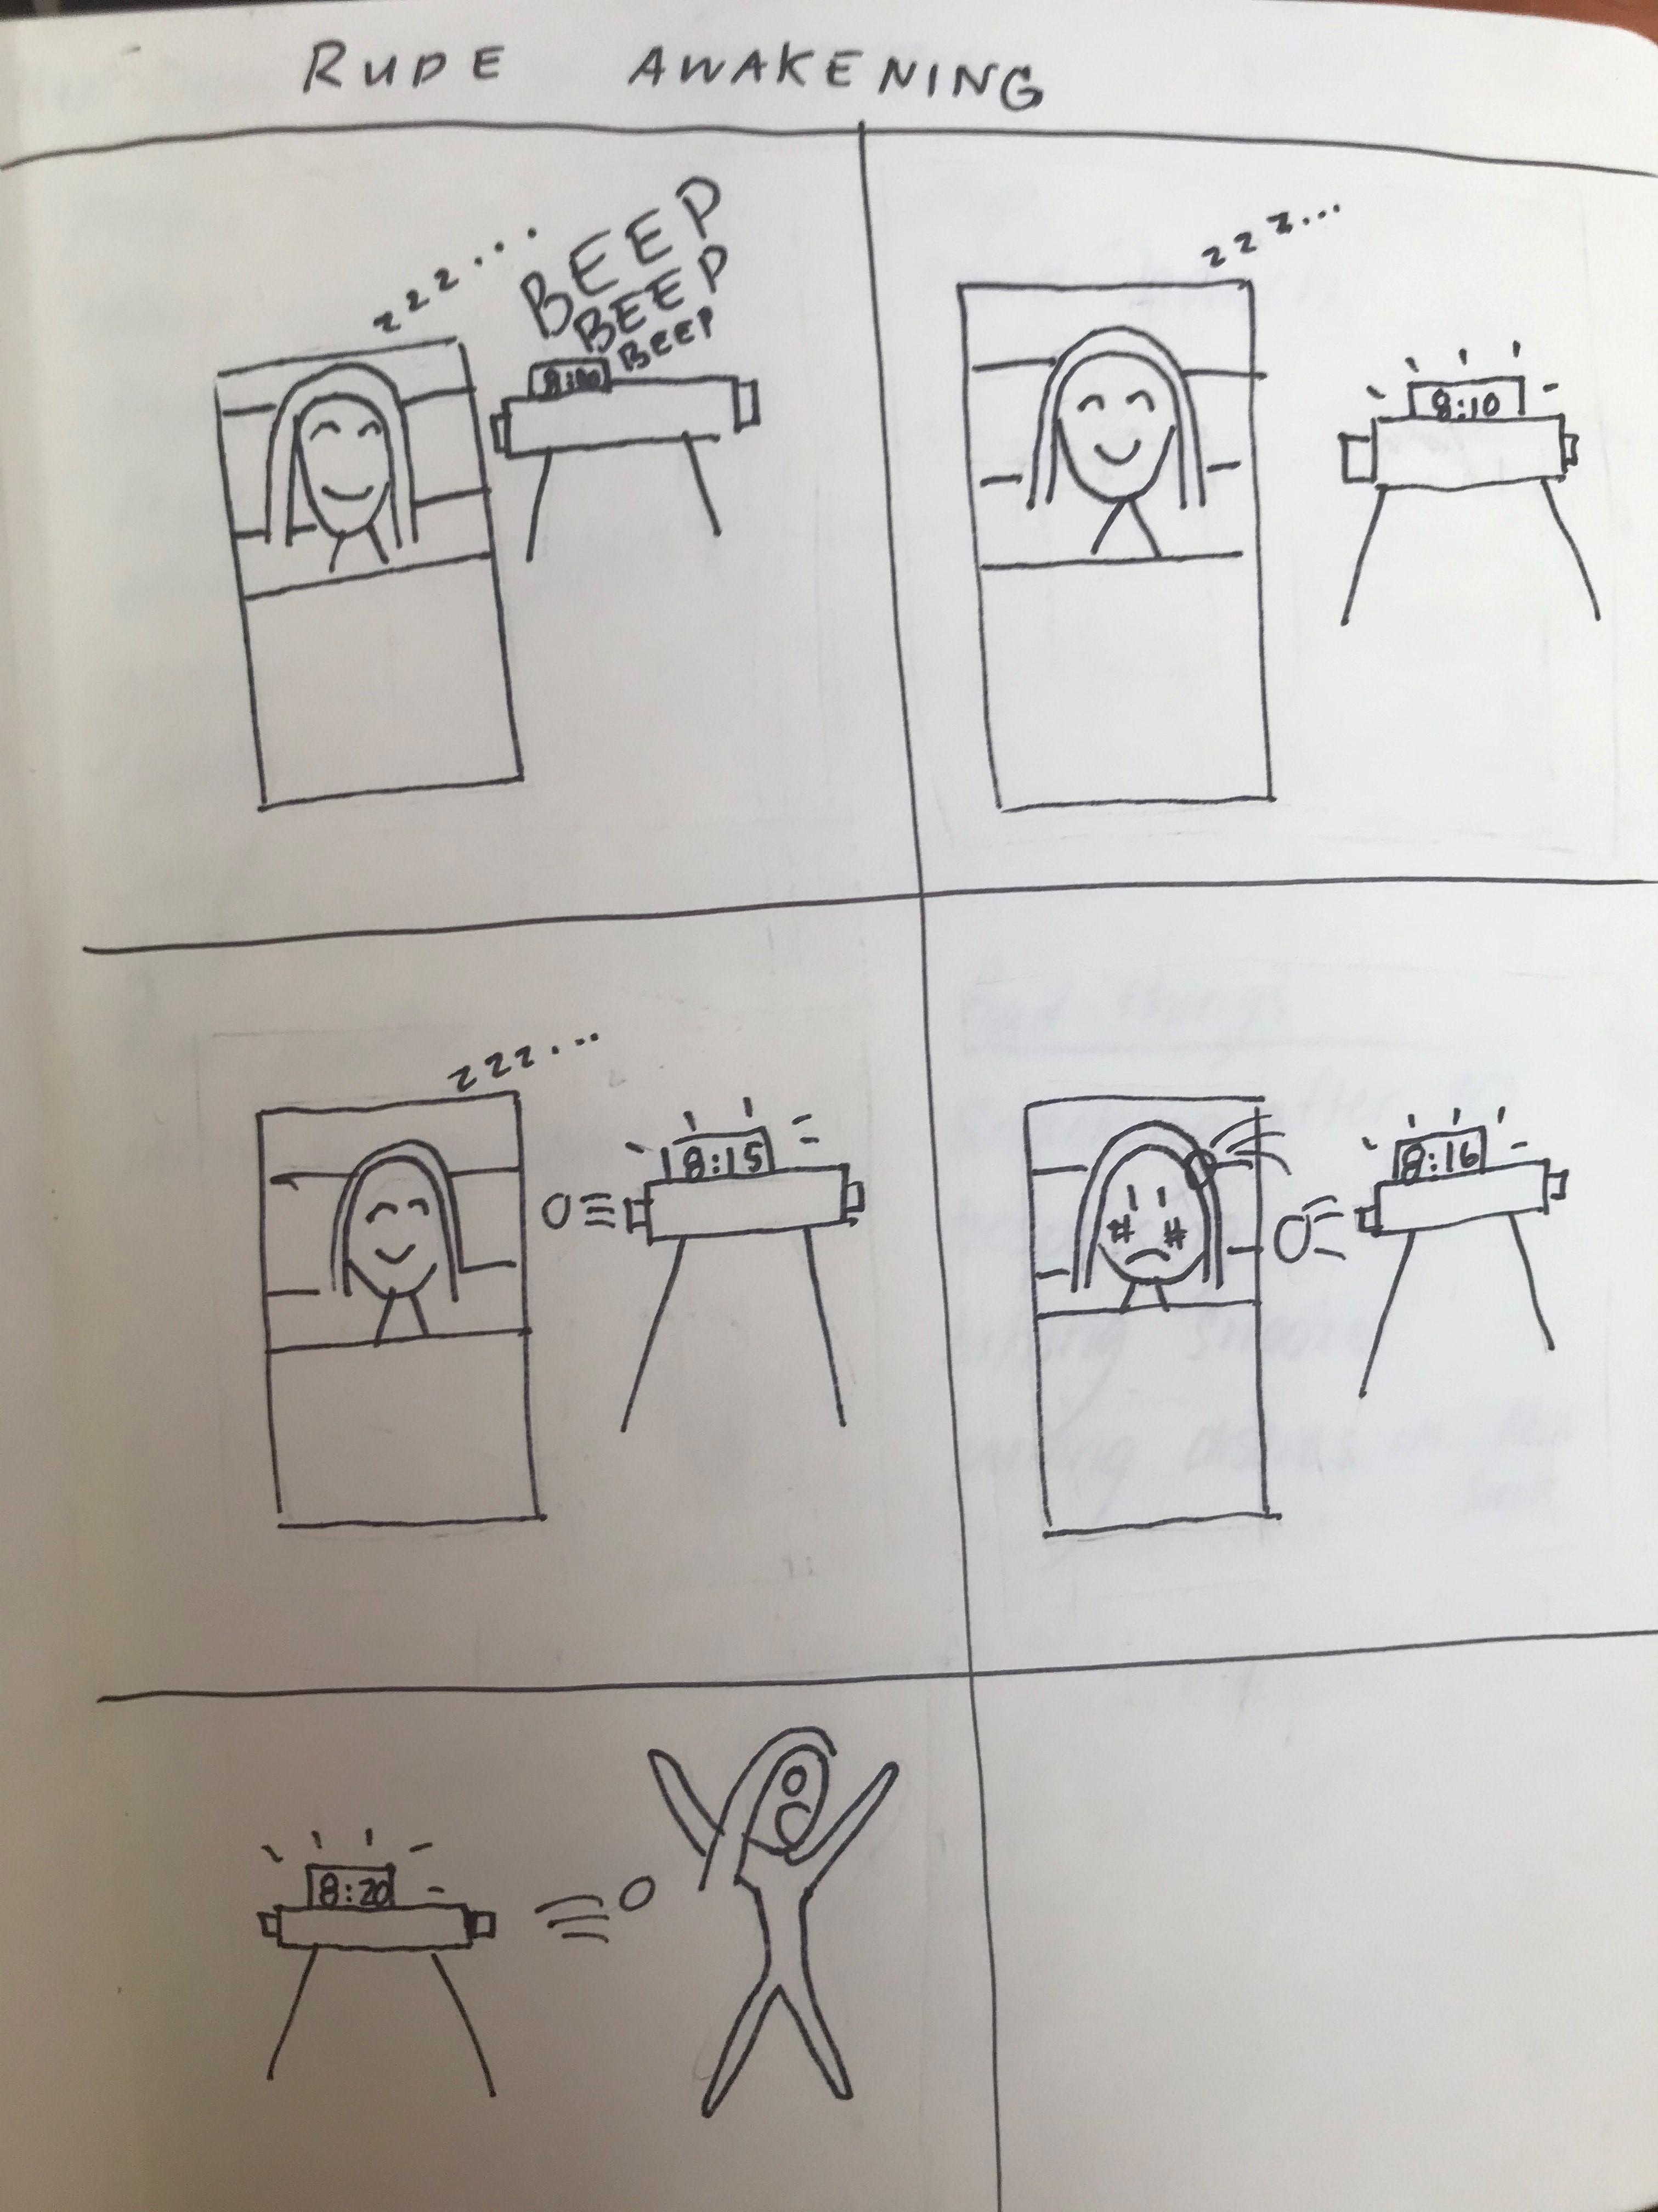 RUDE AWAKENING
zzz...
BEEP
BEEP
BEEP
zzz...
8:10
zzz...
8:15
8:16
8:20